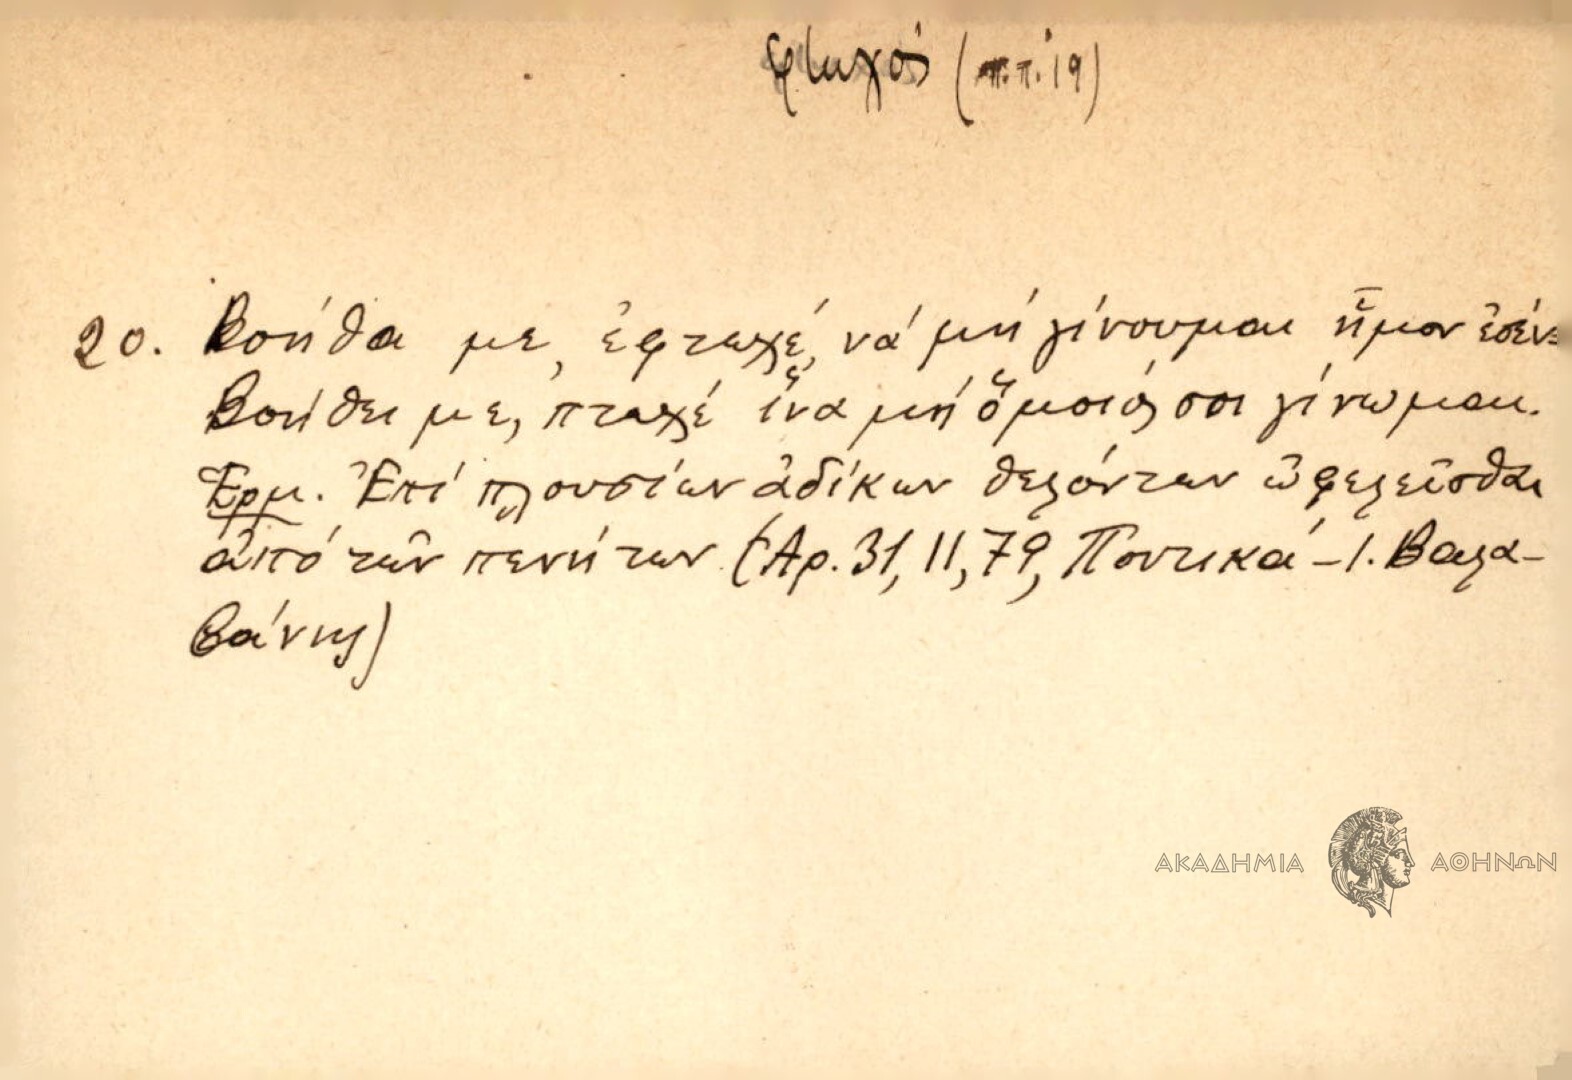 φτωχός (π.π. 19)
20. Βοήθα με, ἐφτωχέ, νά μή γίνουμαι ἥμον ἐσέν=
Βοήθει με, πτωχέ ἵνα μή ὅμοιός σοι γίνωμαι.
Ἑρμ. Ἐπί πλουσίων ἀδίκων θελόντων ὠφελεῖσθαι
ἀπό τῶν πενήτων (Ἀρ. 31, 11, 79, Ποντικά – Ι. Βαλα-
βάνης)
ΑΚΑΔΗΜΙΑ ΑΘΗΝΩΝ